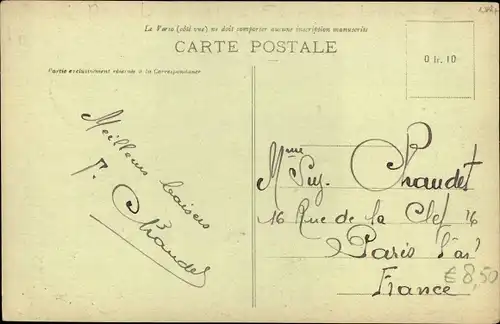 Le Verso (côté vue) ne doit comporter aucune inscription manuscrite
CARTE POSTALE
Partie exclusivement réservée à la Correspondance
0 fr. 10
Meilleurs baisers
Chaudet
Mme
Chaudet
16 Rue de la Clef 16
Paris
France
€ 8,50